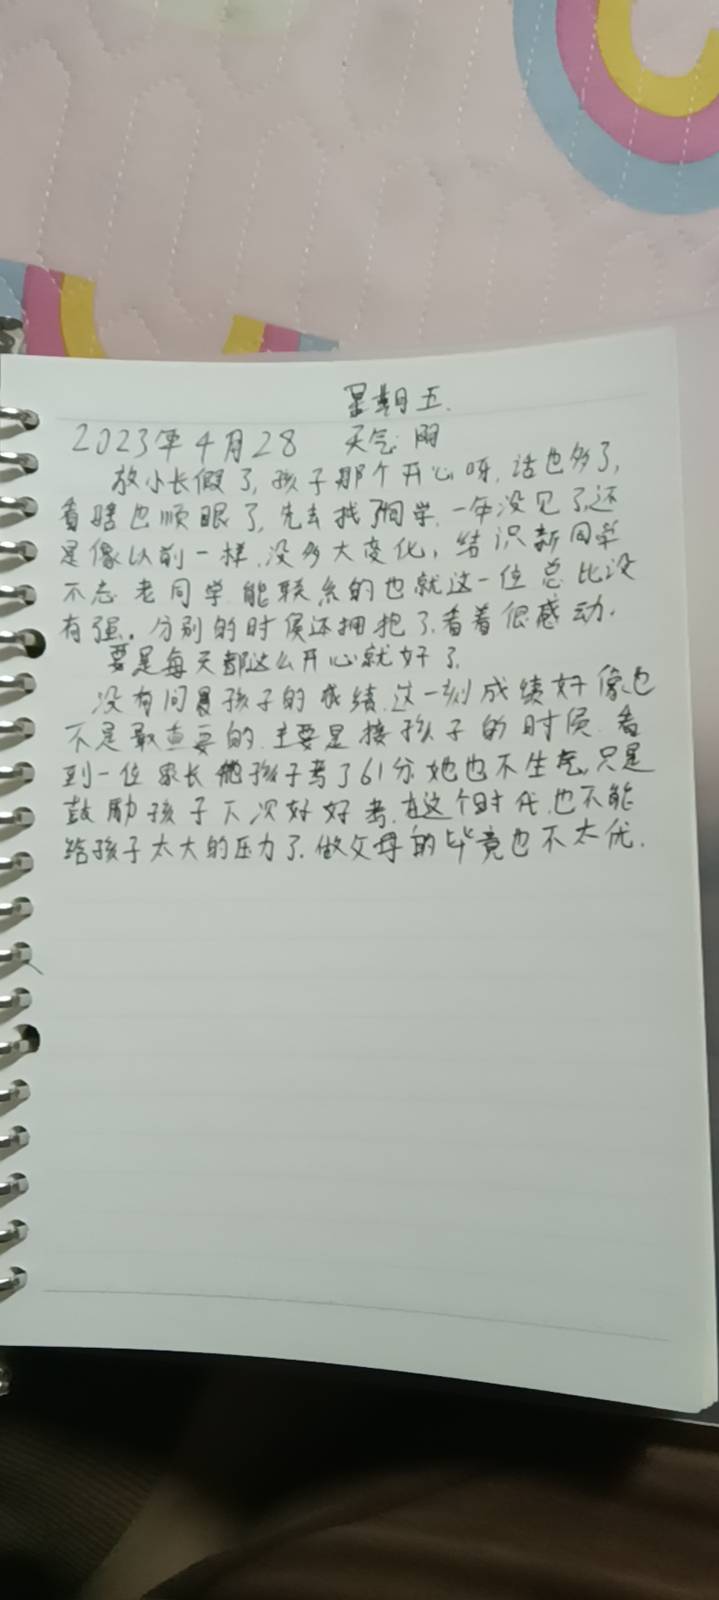 星期五.
2023年4月28 天气:阴
放小长假了,孩子那个开心呀,话也多了,
看啥也顺眼了,先去找了同学,一年没见了,还
是像以前一样,没多大变化,结识新同学
不忘老同学,能联系的也就这一位,总比没
有强。分别的时候还拥抱了,看着很感动.
要是每天都这么开心就好了.
没有问孩子的成绩,这一刻成绩好像也
不是最重要的,主要是接孩子的时候,看
到一位家长他孩子考了61分,她也不生气,只是
鼓励孩子下次好好考,在这个时代,也不能
给孩子太大的压力了,做父母的毕竟也不太优.